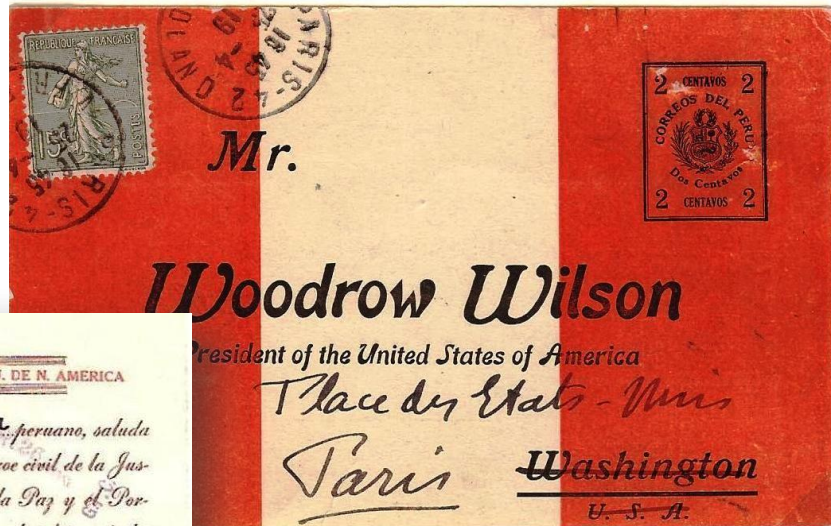 REPUBLIQUE FRANÇAISE
15c
POSTES
PARIS-42
18 45
-4
19
PARIS-42
2 CENTAVOS 2
CORREOS DEL PERU
Dos Centavos
2 CENTAVOS 2
Mr.
Woodrow Wilson
President of the United States of America
Place des Etats-Unis
Paris
Washington
U. S. A.
DE N. AMERICA
peruano, saluda
civil de la Jus-
Paz y el Por-